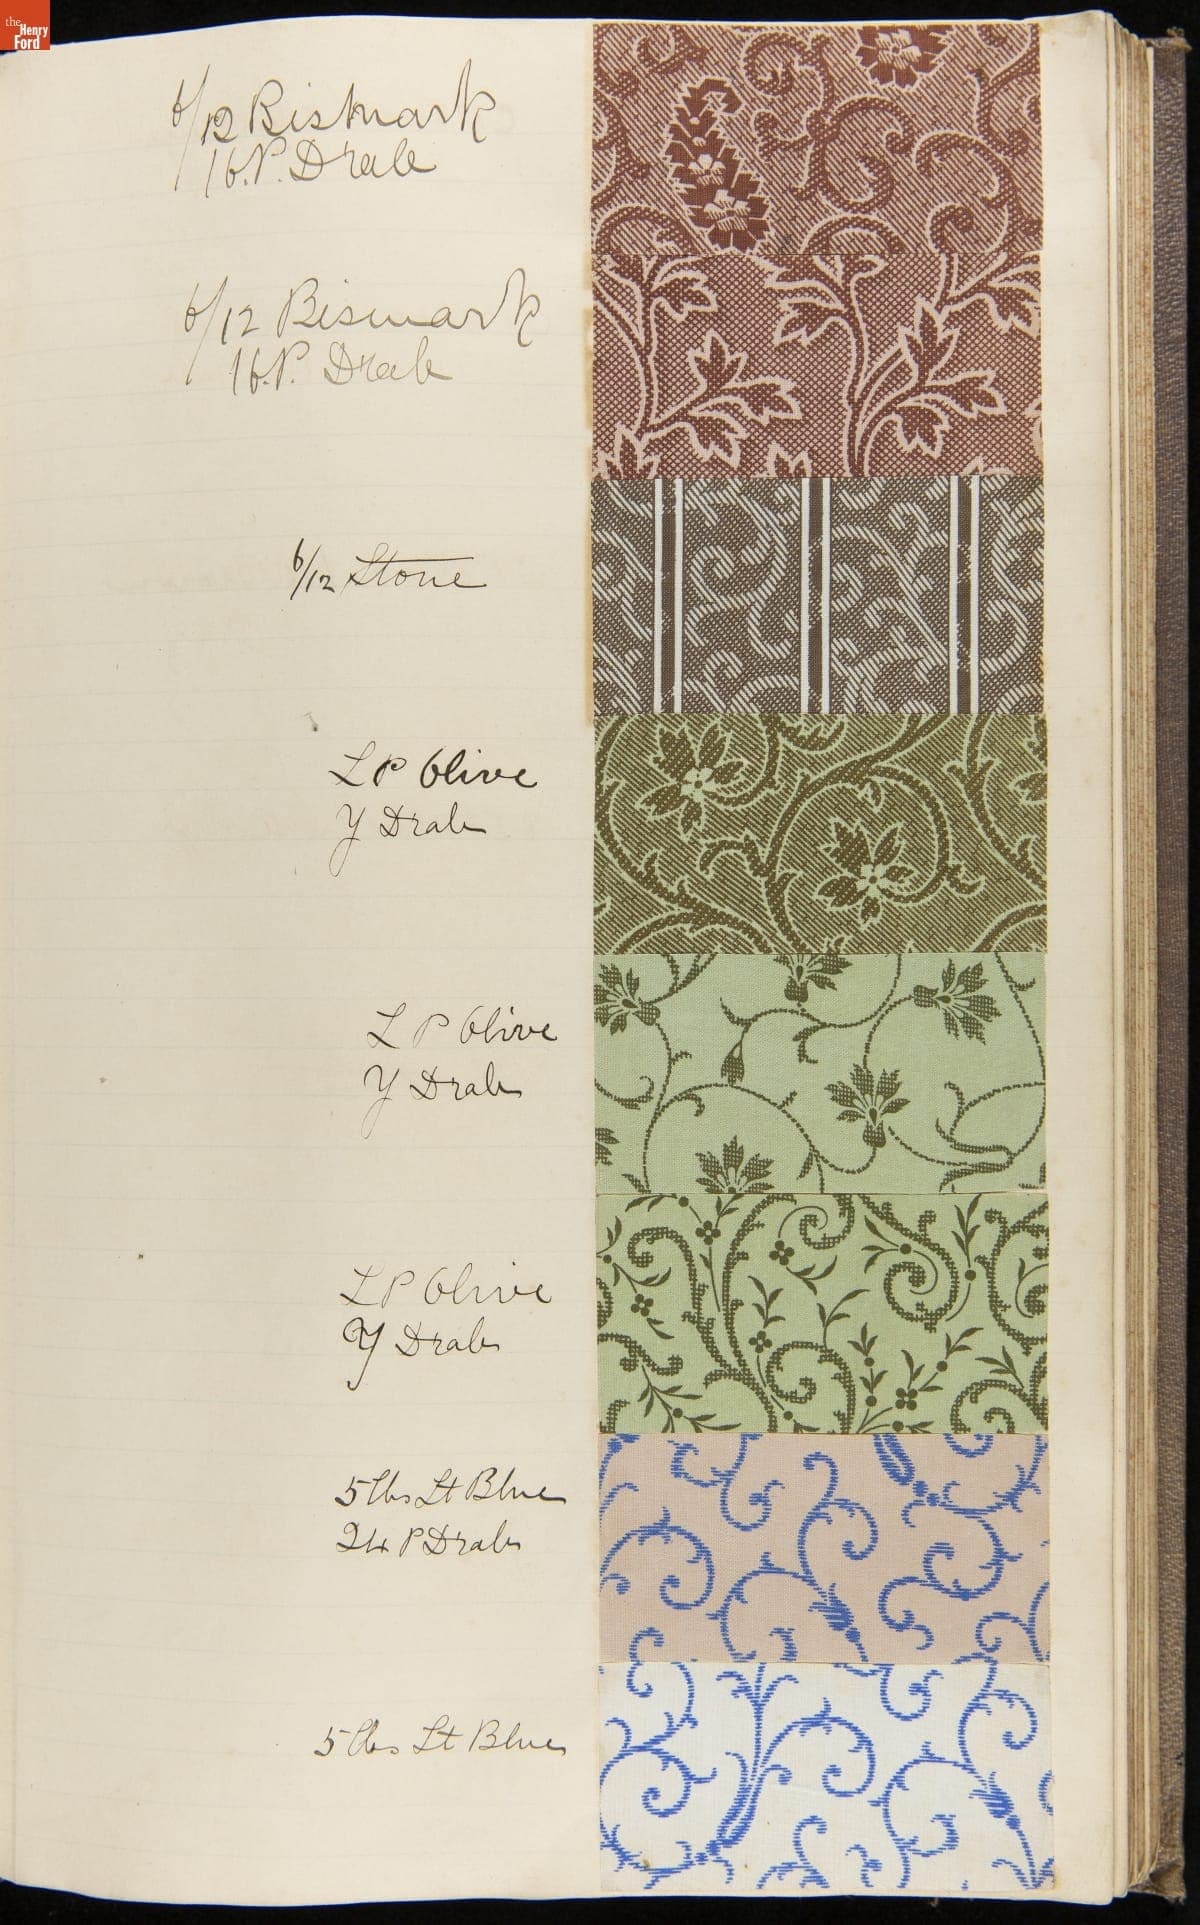 the
Henry
Ford
6/12 Bismark
16.P. Drab
6/12 Bismark
16.P. Drab
6/12 Stone
L P Olive
Y Drab
L P Olive
Y Drab
L P Olive
Y Drab
5 lbs Lt Blue
24 P Drab
5 lbs Lt Blue